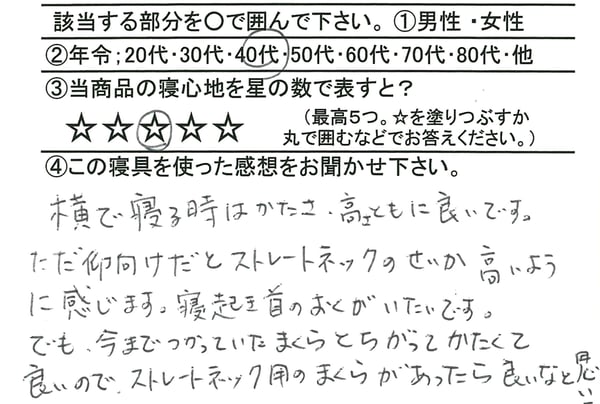 該当する部分を〇で囲んで下さい。①男性・女性
②年令;20代・30代・40代・50代・60代・70代・80代・他
③当商品の寝心地を星の数で表すと?
☆☆☆☆☆ (最高5つ。☆を塗りつぶすか
丸で囲むなどでお答えください。)
④この寝具を使った感想をお聞かせ下さい。
横で寝る時はかたさ、高さともに良いです。
ただ仰向けだとストレートネックのせいか高いよう
に感じます。寝起き首のおくがいたいです。
でも、今までつかっていたまくらとちがってかたくて
良いので、ストレートネック用のまくらがあったら良いなと思い